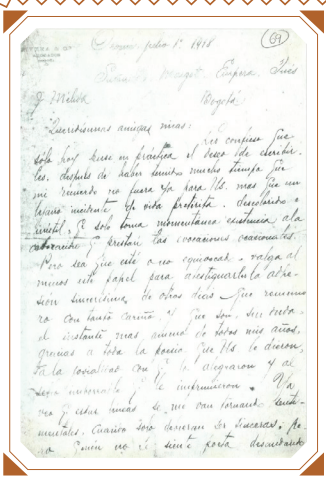 69
1º 1918
Margot, Empera, Inés
y Mélida
Bogotá
Queridísimas amigas mías:
Les confieso que
sólo hoy puse en práctica el deseo de escribir
les, después de haber mucho tiempo que
mi recuerdo no fuera ya para Us. mas que un
lejano incidente de vida pretérita, descolorido e
inútil, y solo toma momentánea existencia a la
y prestan las evocaciones ocasionales.
Pero sea que esté o no equivocada, valga al
menos este papel para atestiguarles la adhe-
sión sincerísima de otros días que rememo
ro con tanto cariño, y que son, sin duda,
el instante mas ameno de todos mis años,
gracias a toda la poesía que Us. le dieron,
a la con q. lo alegraron y al
sello imborrable q. le imprimieron. Ya
veo q. estas líneas se me van tornando senti-
mentales, cuando solo debieran ser sinceras. Pe-
ro quien no se siente poeta